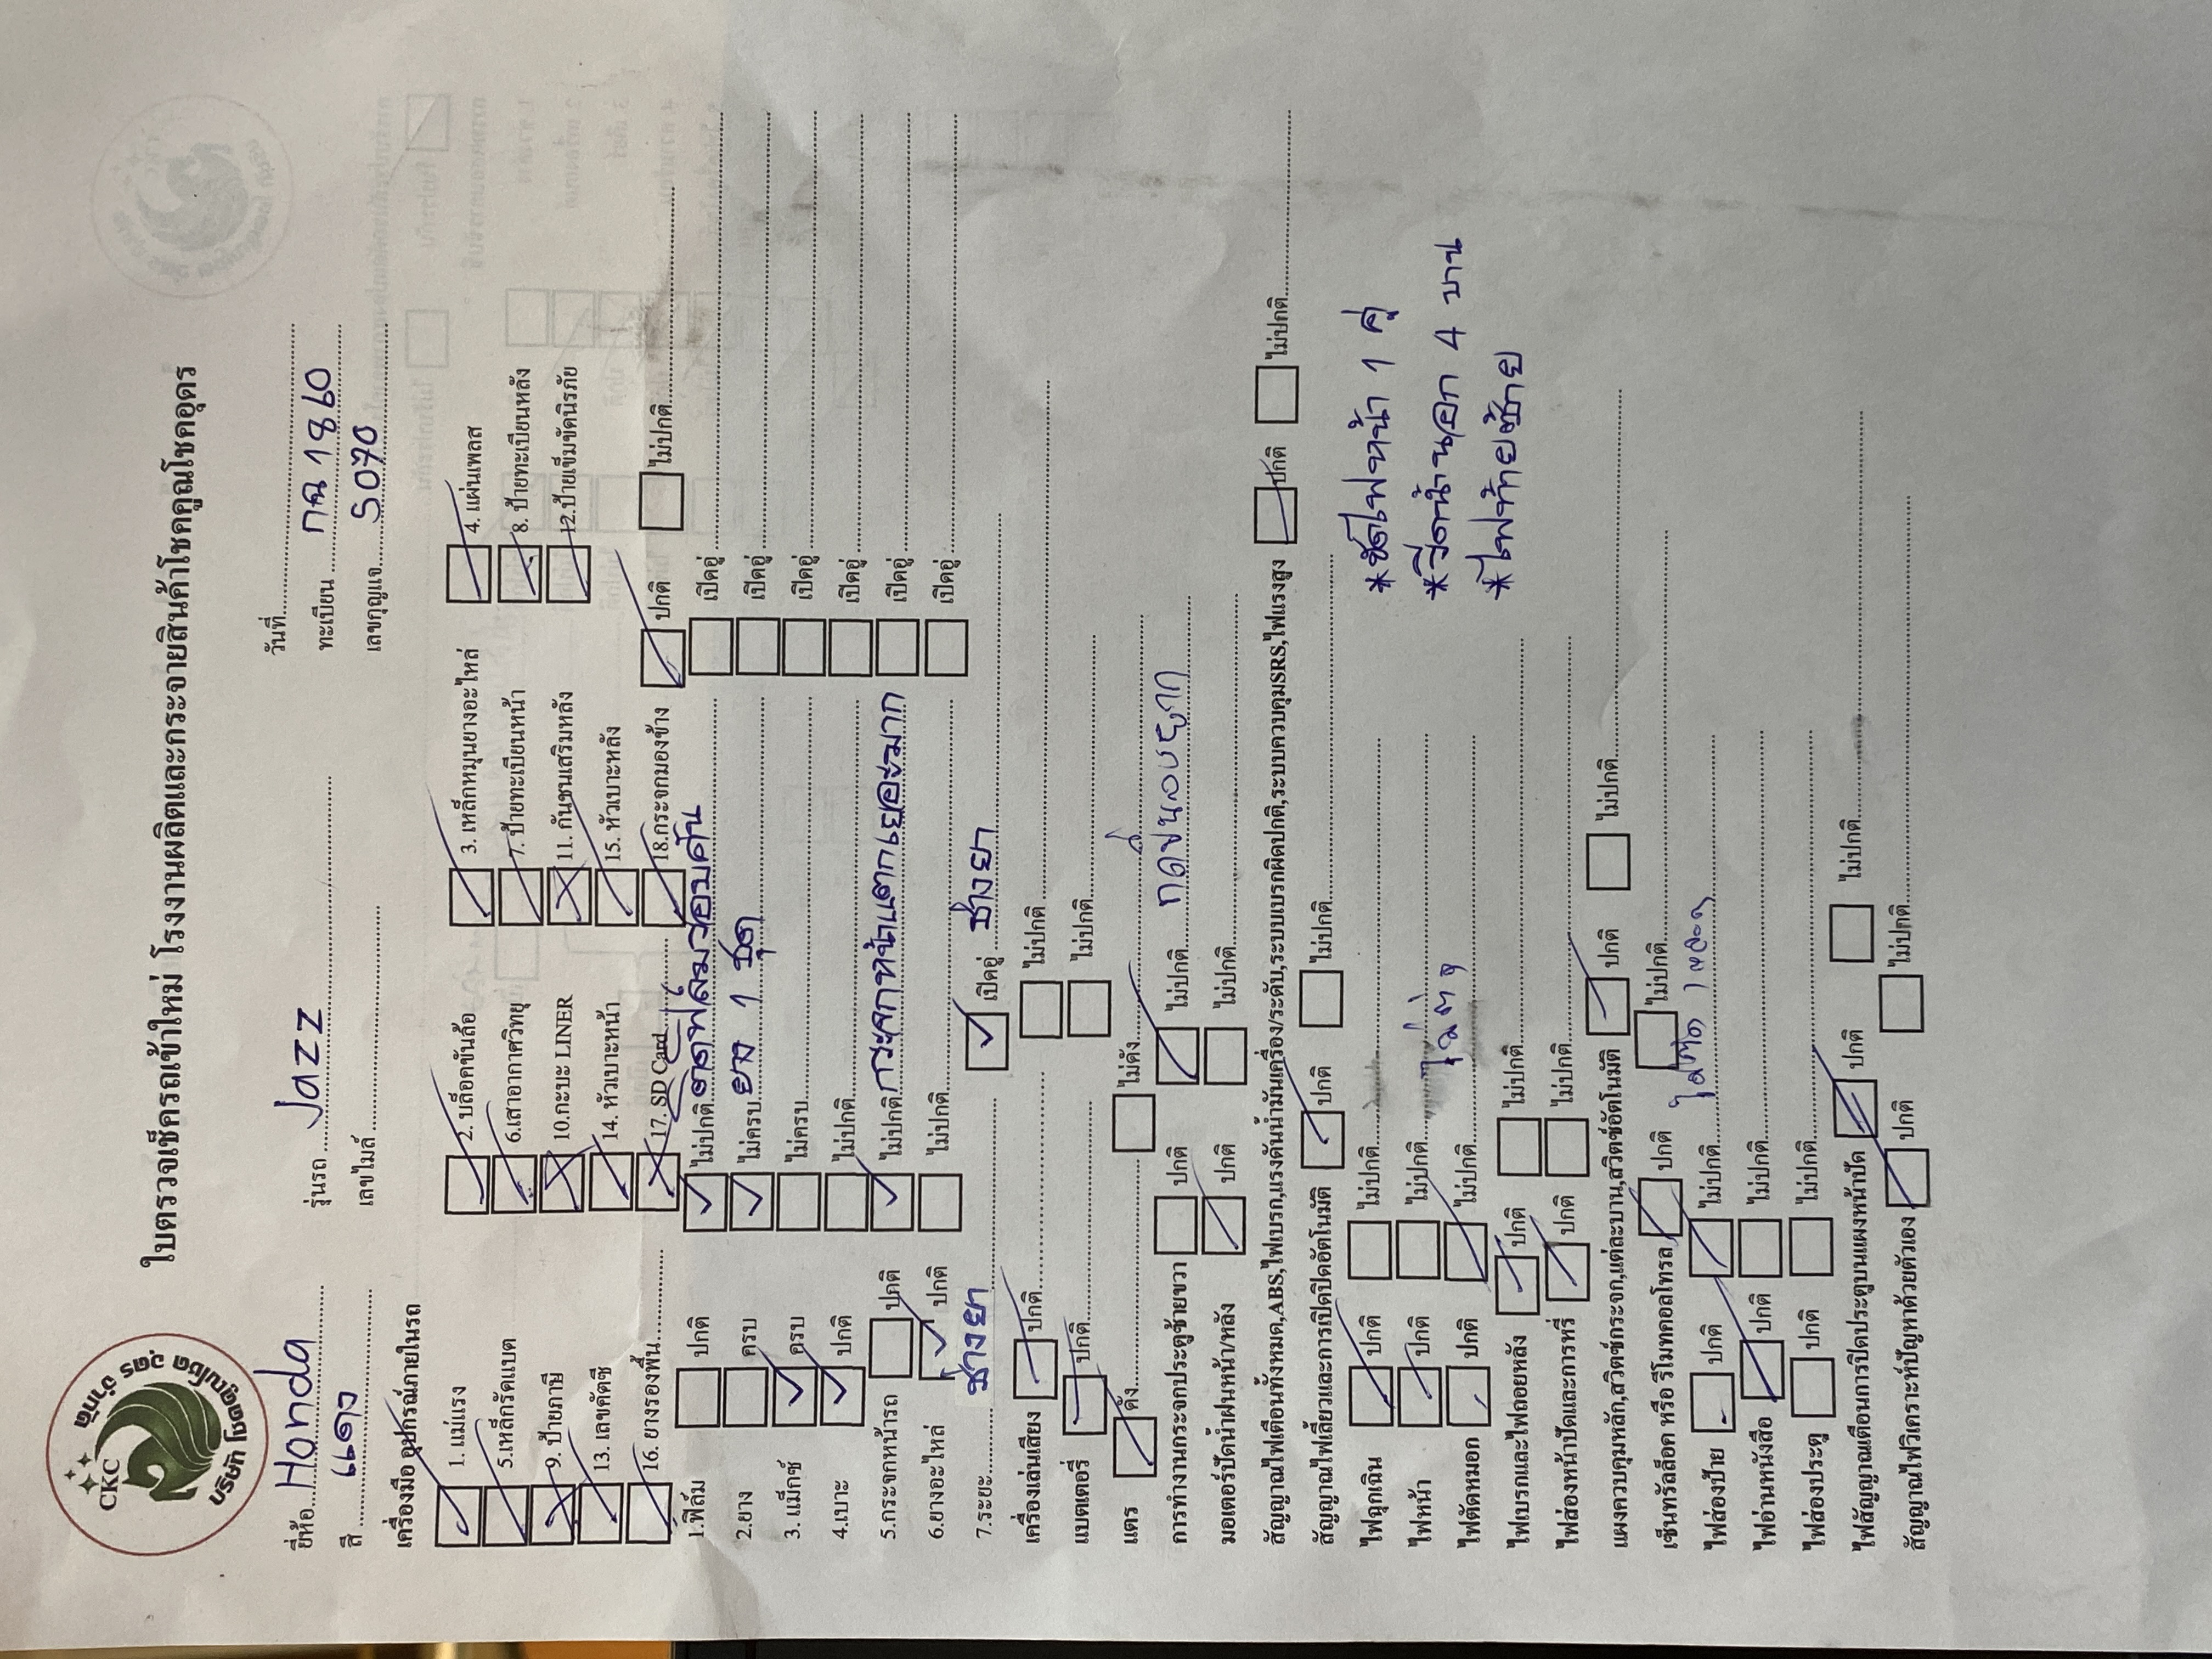 CKC
บริษัท โชคคูณโชค อุดร จำกัด
ใบตรวจเช็ครถเข้าใหม่ โรงงานผลิตและกระจายสินค้าโชคคูณโชคอุดร
วันที่
ยี่ห้อ Honda รุ่นรถ Jazz ทะเบียน กฉ 1860
สี แดง เลขไมล์ เลขกุญแจ 5070
เครื่องมือ อุปกรณ์ภายในรถ
1. แม่แรง 2. บล็อคขันล้อ 3. เหล็กหมุนยางอะไหล่ 4. แผ่นเพลส
5.เหล็กรัดแบต 6.เสาอากาศวิทยุ 7.ป้ายทะเบียนหน้า 8. ป้ายทะเบียนหลัง
9. ป้ายภาษี 10.กะบะ LINER 11. กันชนเสริมหลัง 12.ป้ายเข็มขัดนิรภัย
13. เลขคัตซี 14. หัวเบาะหน้า 15. หัวเบาะหลัง
16. ยางรองพื้น 17. SD Card 18.กระจกมองข้าง ปกติ ไม่ปกติ
1.ฟิล์ม ปกติ ไม่ปกติ ติดฟิล์มรอบคัน เปิดอู่
2.ยาง ครบ ไม่ครบ ยาง 1 ชุด เปิดอู่
3. แม็กซ์ ครบ ไม่ครบ เปิดอู่
4.เบาะ ปกติ ไม่ปกติ เปิดอู่
5.กระจกหน้ารถ ปกติ ไม่ปกติ กระจกหน้าแตกเยอะมาก เปิดอู่
6.ยางอะไหล่ ปกติ ไม่ปกติ เปิดอู่
7.ระยะ ช่างยา เปิดอู่ ช่างยา
เครื่องเล่นเสียง ปกติ ไม่ปกติ
แบตเตอรี่ ปกติ ไม่ปกติ
แตร ดัง ไม่ดัง
การทำงานกระจกประตูซ้ายขวา ปกติ ไม่ปกติ
มอเตอร์ปัดน้ำฝนหน้า/หลัง ปกติ ไม่ปกติ
สัญญาณไฟเตือนทั้งหมด,ABS,ไฟเบรก,แรงดันน้ำมันเครื่อง/ระดับ,ระบบเบรกผิดปกติ,ระบบควบคุมSRS,ไฟแรงสูง ปกติ ไม่ปกติ
สัญญาณไฟเลี้ยวและการเปิดปิดอัตโนมัติ ปกติ ไม่ปกติ
ไฟฉุกเฉิน ปกติ ไม่ปกติ
*ขัดไฟหน้า 1 คู่
ไฟหน้า ปกติ ไม่ปกติ
*รีดน้ำนอก 4 บาน
ไฟตัดหมอก ปกติ ไม่ปกติ
*ไฟท้ายซ้าย
ไฟเบรกและไฟถอยหลัง ปกติ ไม่ปกติ
ไฟส่องหน้าปัดและการหรี่ ปกติ ไม่ปกติ
แผงควบคุมหลัก,สวิตซ์กระจก,แต่ละบาน,สวิตซ์อัตโนมัติ ปกติ ไม่ปกติ
เซ็นทรัลล็อค หรือ รีโมทคอลโทรล ปกติ ไม่ปกติ
ไฟส่องป้าย ปกติ ไม่ปกติ
ไฟอ่านหนังสือ ปกติ ไม่ปกติ
ไฟส่องประตู ปกติ ไม่ปกติ
ไฟสัญญาณเตือนการปิดประตูบนแผงหน้าปัด ปกติ ไม่ปกติ
สัญญาณไฟวิเคราะห์ปัญหาด้วยตัวเอง ปกติ ไม่ปกติ